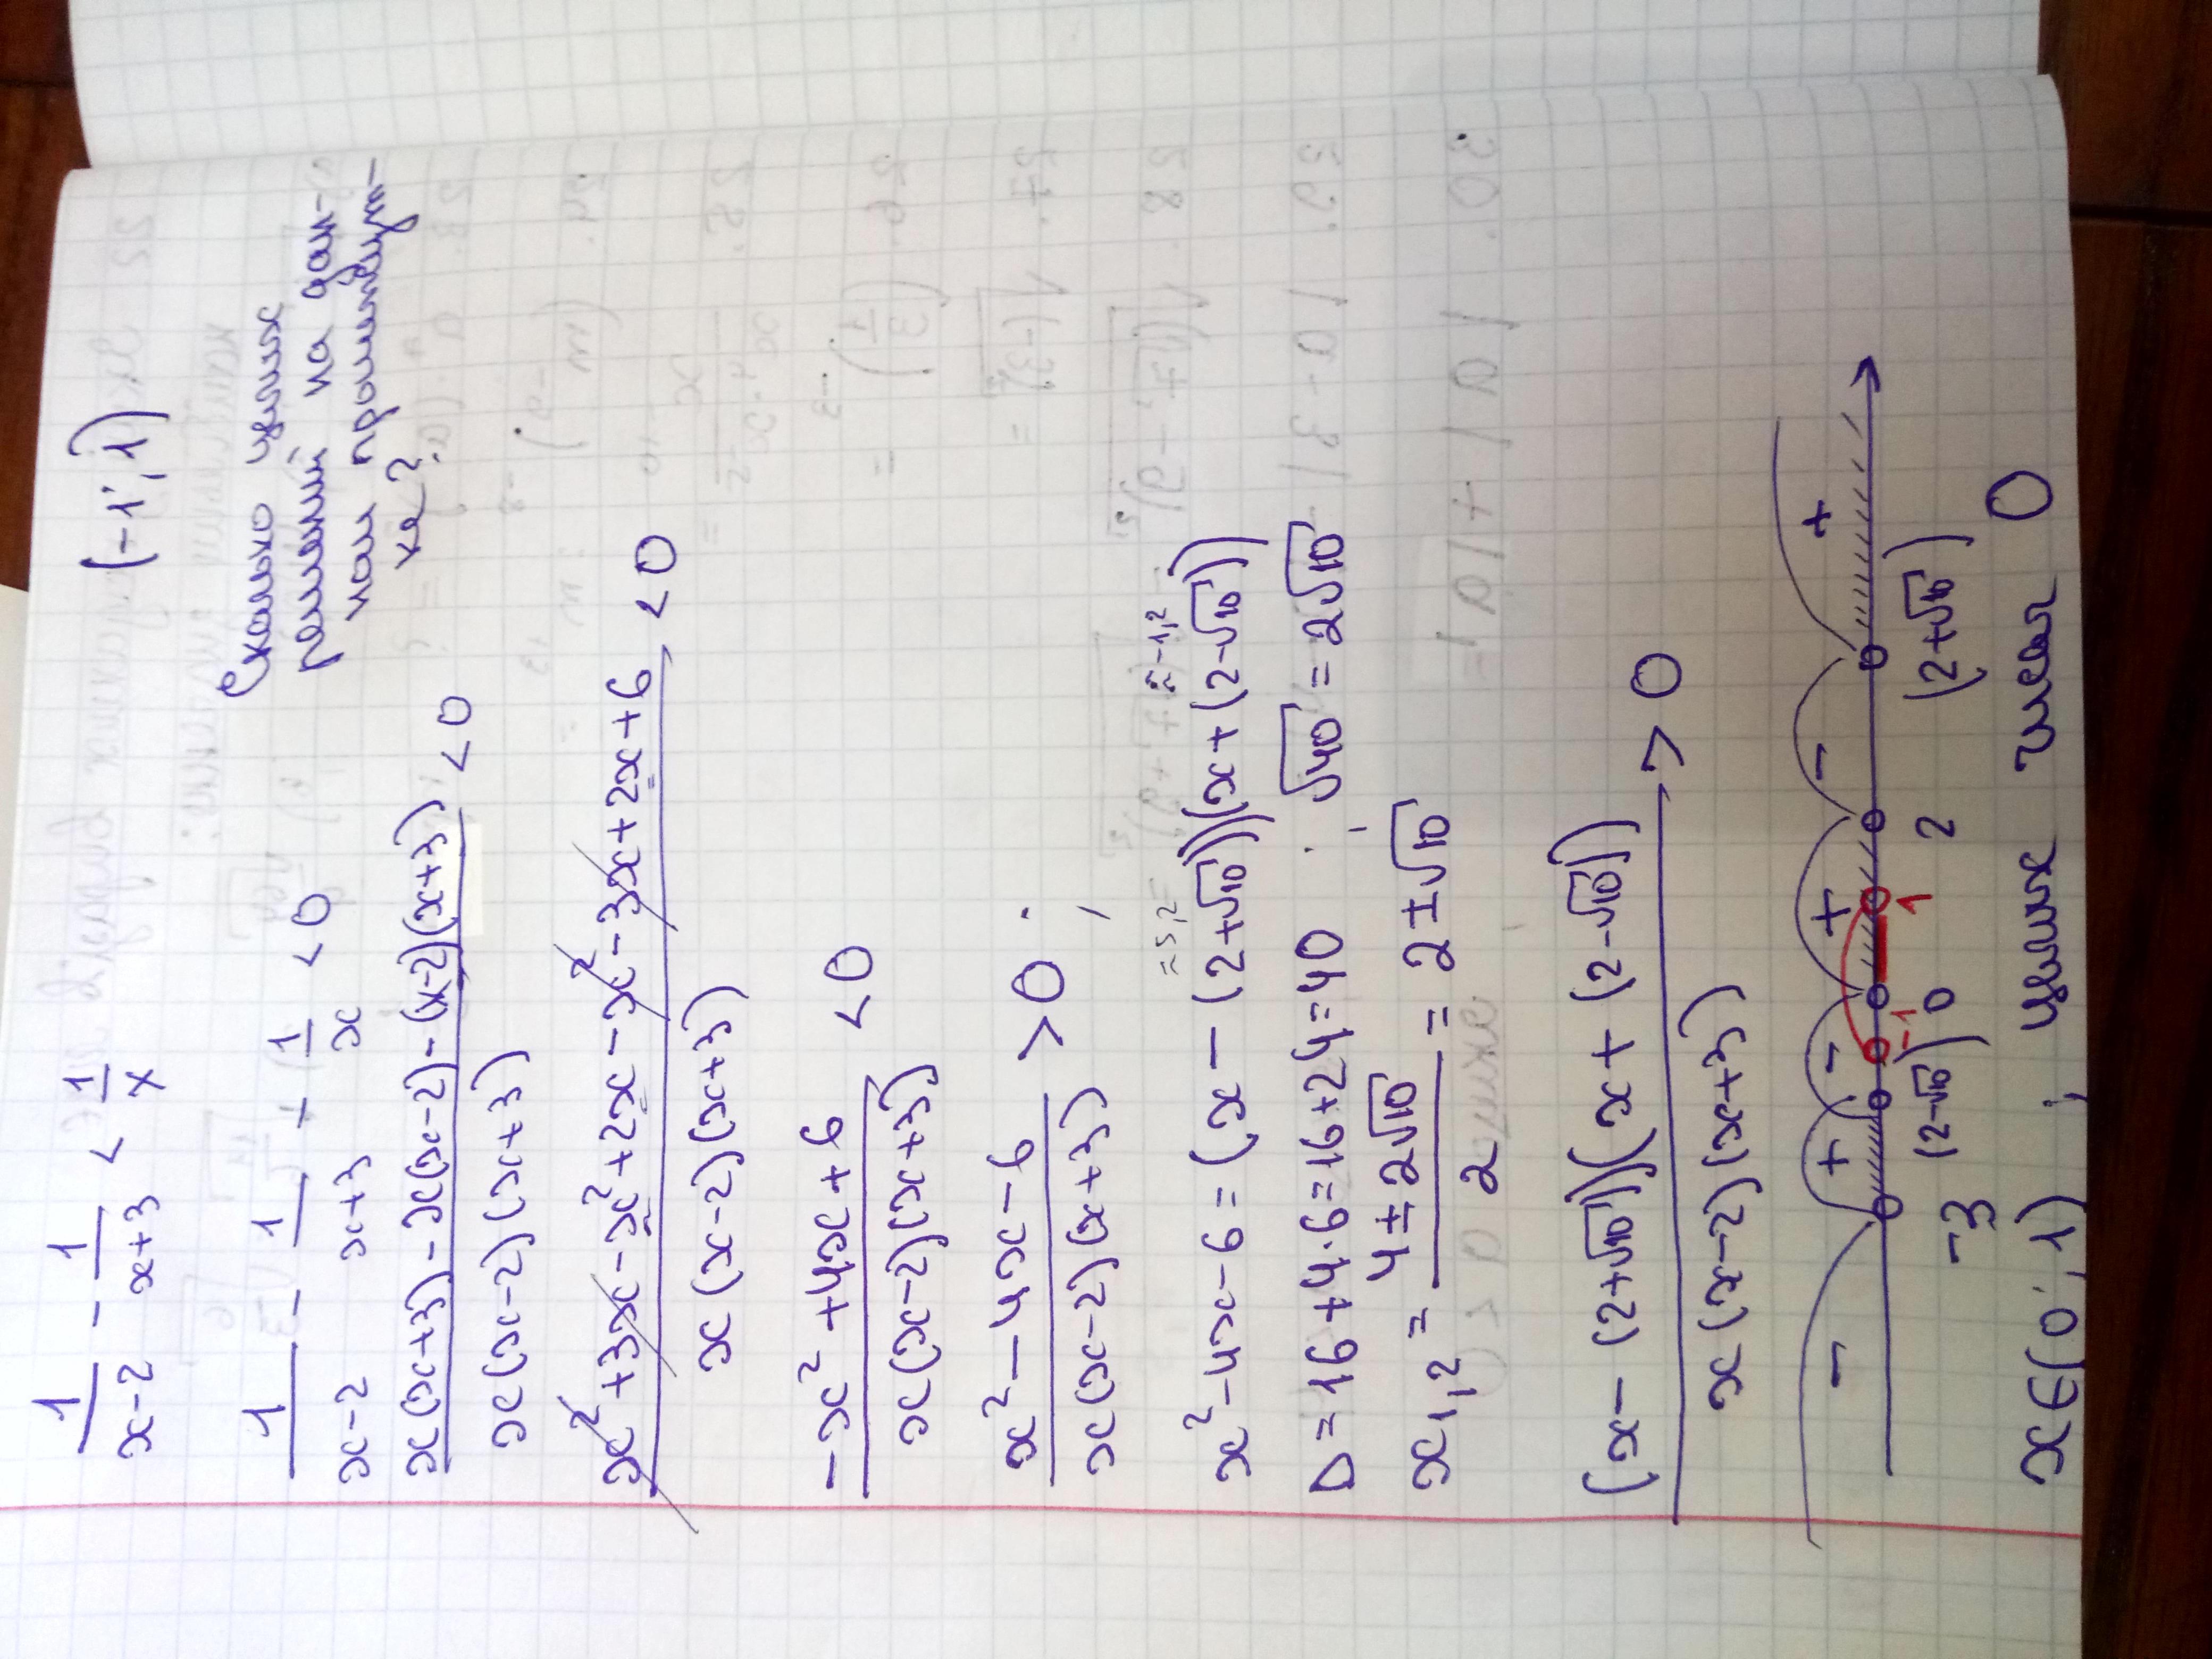 1/(x-2) - 1/(x+3) < 1/x (-1; 1)
Сколько целых
решений на дан-
ном промежут-
ке?
1/(x-2) - 1/(x+3) + (1/x < 0
(x(x+3) - x(x-2) - (x-2)(x+3))/(x(x-2)(x+3)) < 0
(x² + 3x - x² + 2x - x² - 3x + 2x + 6)/(x(x-2)(x+3)) < 0
(-x² + 4x + 6)/(x(x-2)(x+3)) < 0
(x² - 4x - 6)/(x(x-2)(x+3)) > 0 ;
≈5,2 ≈-1,2
x² - 4x - 6 = (x - (2+√10))(x + (2-√10))
D = 16 + 4·6 = 16 + 24 = 40 ; √40 = 2√10
x1,2 = (4 ± 2√10)/2 = 2 ± √10
((x - (2+√10))(x + (2-√10)))/(x(x-2)(x+3)) > 0
- + - + - +
-1 1
-3 (2-√10) 0 2 (2+√10)
x ∈ (0; 1) ; целых чисел 0